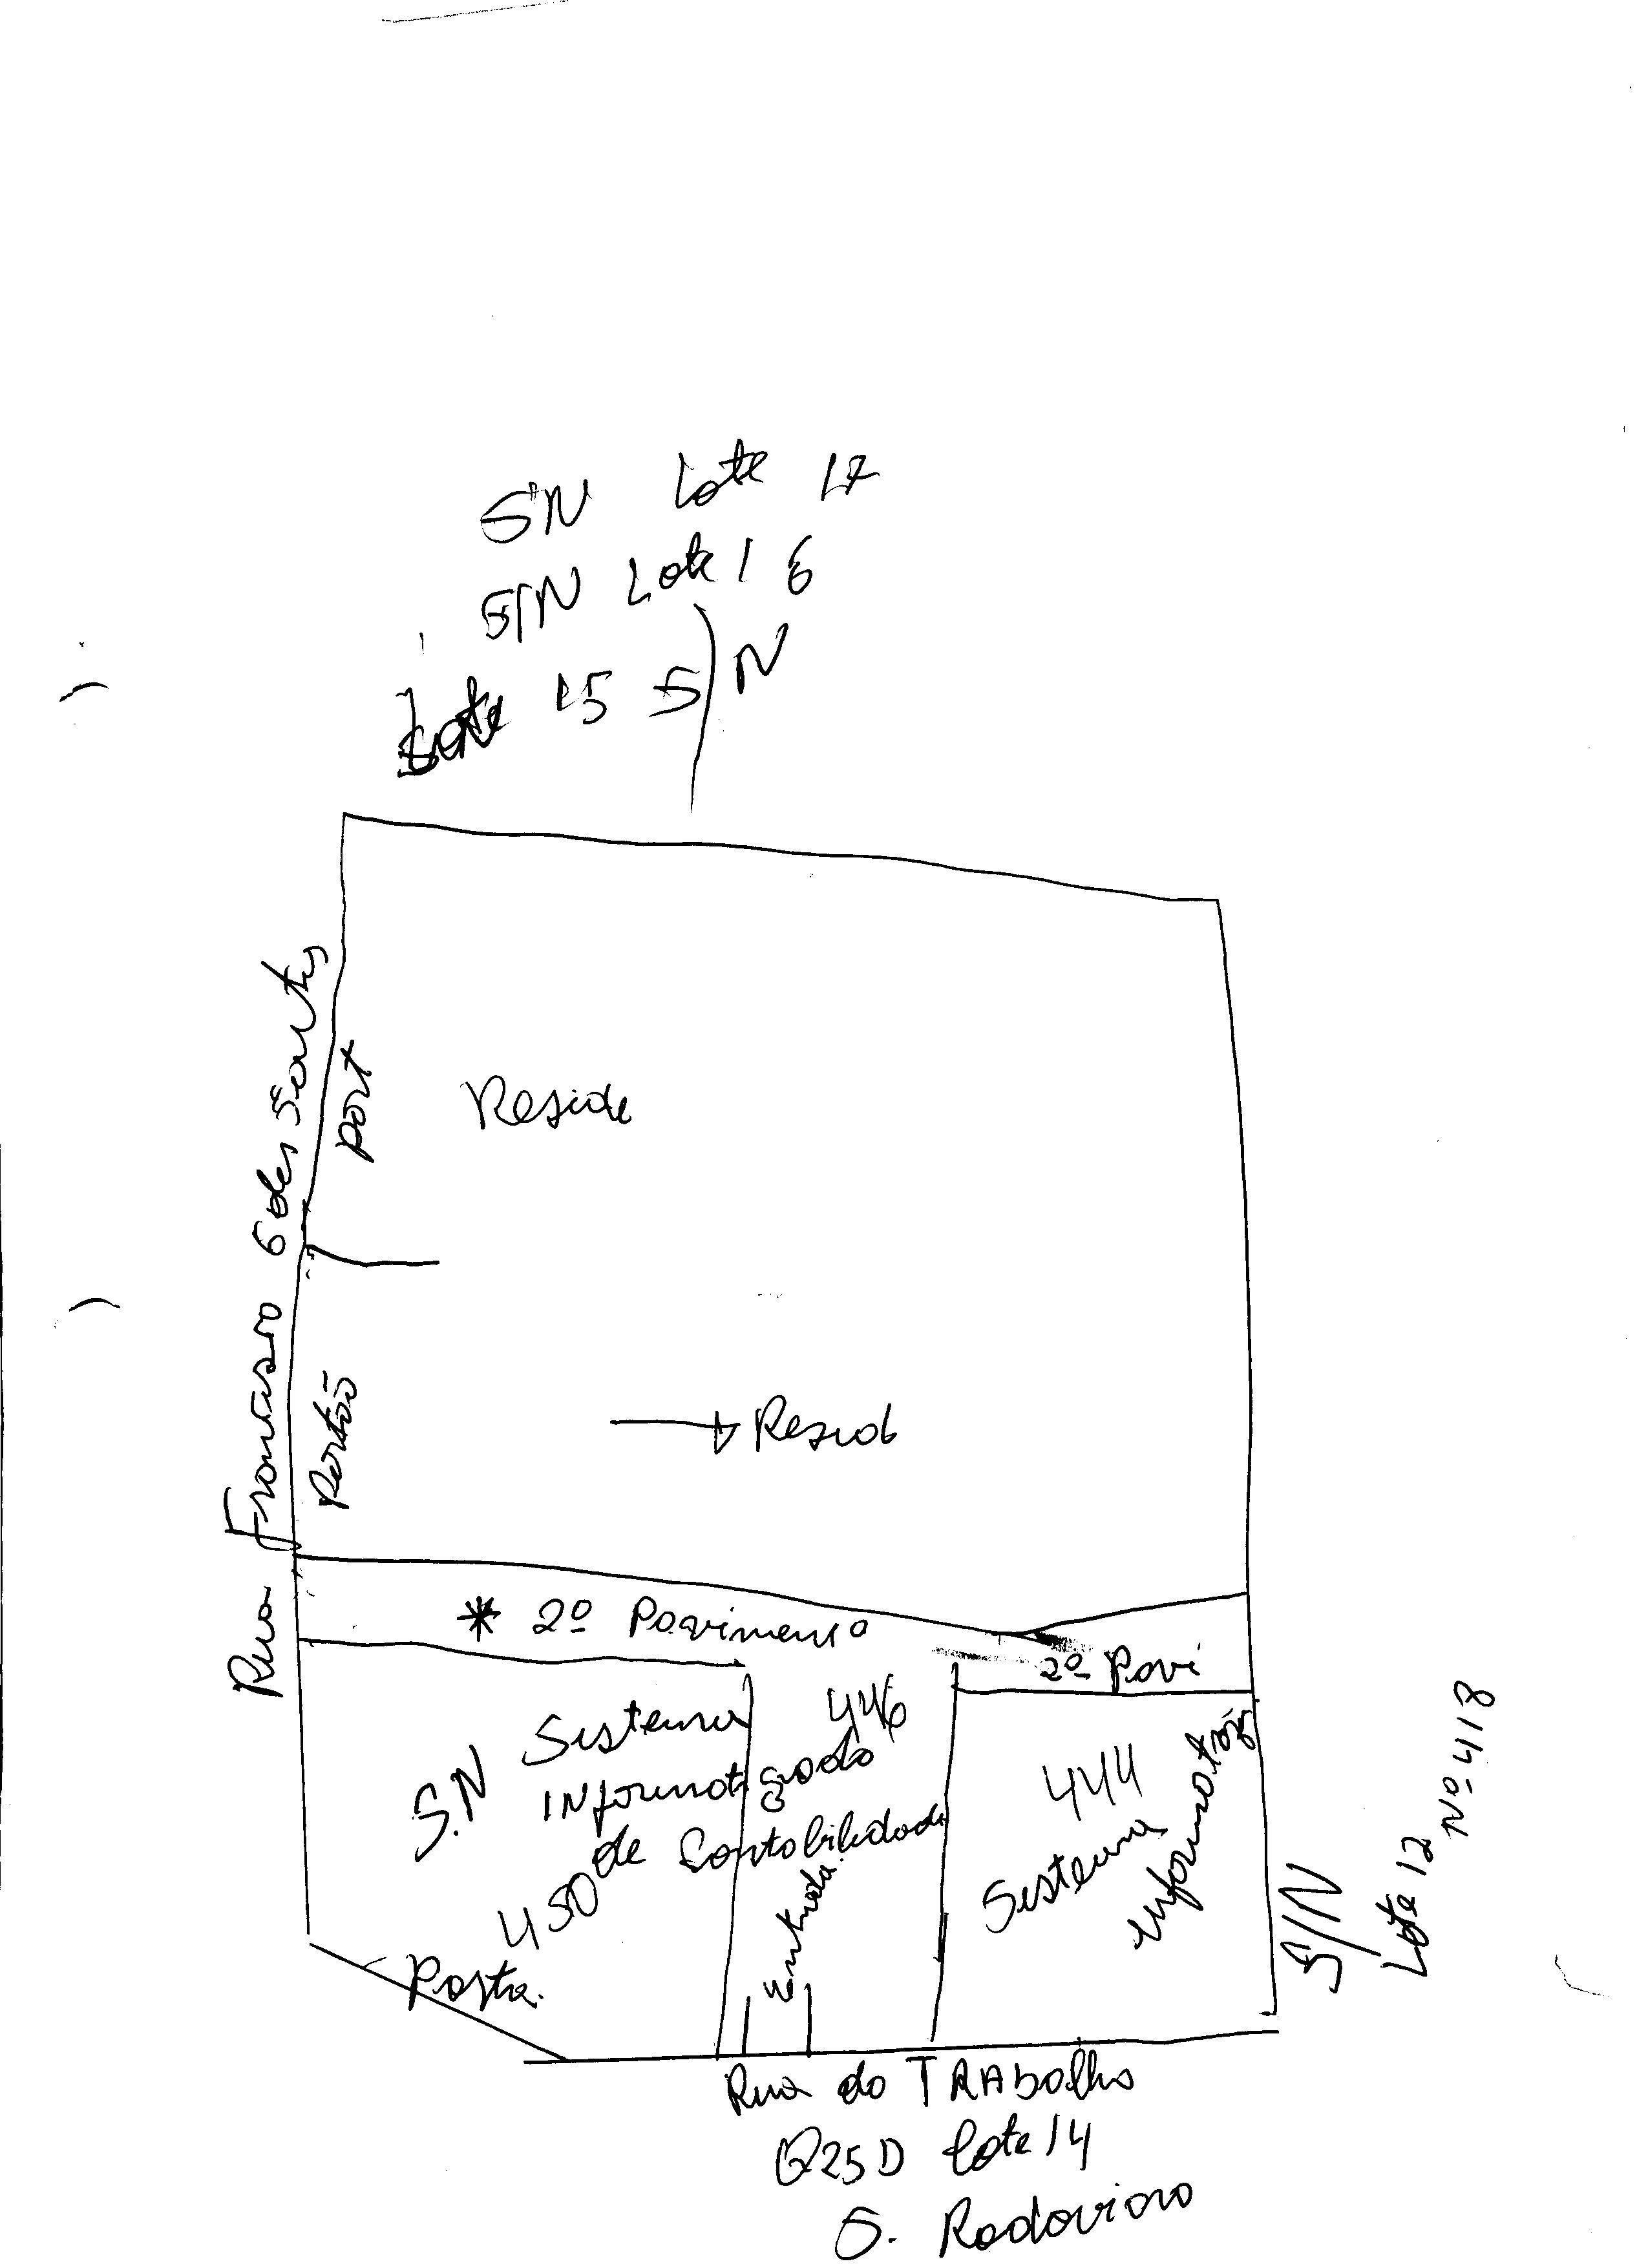 SN Lote 17
S/N Lote 16
Lote 15 S/N
Rua Francisco G des Santos
Port
Reside
Portão
Resid
* 2º Pavimento
2º Pavi
S.N Sistema
446
Informatizado
de Contabilidade
450
Entrada
Porta.
444
Sistema
informatiz
S/N
Lote 12 Nº 418
Rua do TRAbalho
Q25D Lote 14
S. Rodoviaro